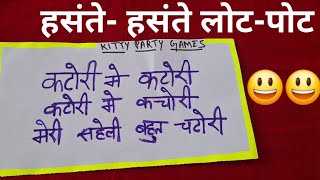 हसंते- हसंते लोट-पोट
KITTY PARTY GAMES
कटोरी मे कटोरी
कटोरी मे कचोरी
मेरी सहेली बहुत चटोरी